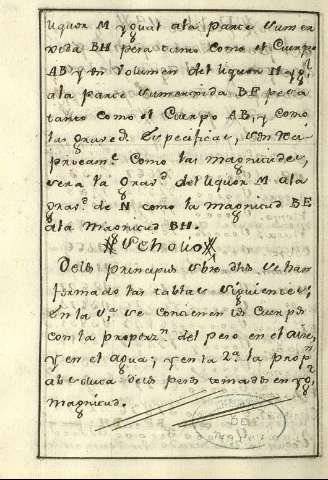 liquor M ygual ala parte Sumer
xida BH pesa tanto como el Cuerpo
AB, y un Volumen del liquor N ygl
ala parte Sumergida BE pesa
tanto como el Cuerpo AB, y como
las graved. Especificas, son reci
procamte. Como las magnitudes,
sera la Gravd. del liquor M ala
Gravd. de N como la magnitud BE
ala magnitud BH.
Scholio
Delos principios sbre dhos se han
formado las tablas siguientes;
En la 1.a se contienen los Cuerpos
con la proporn. del peso en el aire,
y en el agua; y en la 2.a la prop.
absoluta delos pesos tomados en ygl
magnitud.